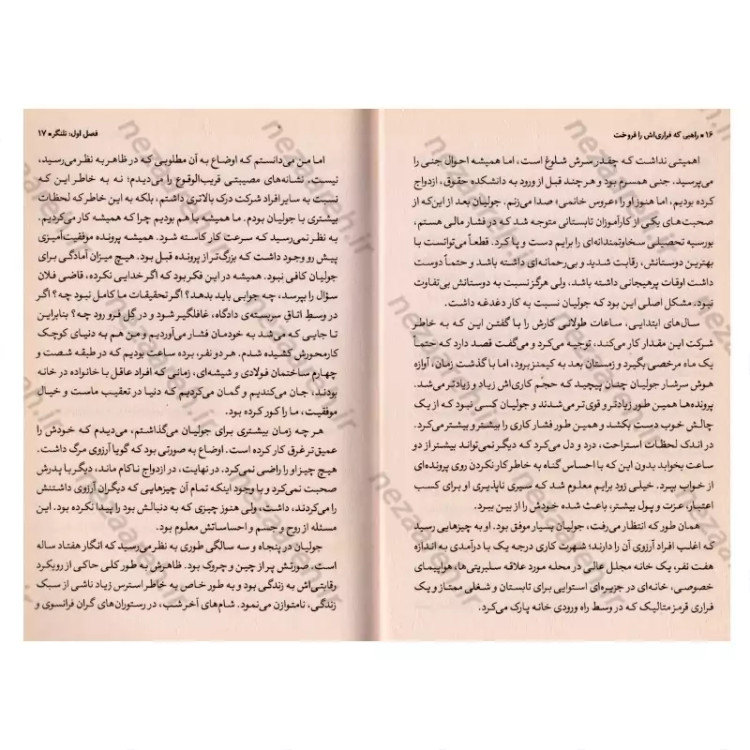 ۱۶ • راهبی که فراری‌اش را فروخت
اهمیتی نداشت که چقدر سرش شلوغ است، اما همیشه احوال جنی را
می‌پرسید، جنی همسرم بود و هر چند قبل از ورود به دانشکده حقوق، ازدواج
کرده بودیم، اما هنوز او را «عروس خانمی» صدا می‌زنم. جولیان بعد از این‌که از
صحبت‌های یکی از کارآموزان تابستانی متوجه شد که در فشار مالی هستم،
بورسیه تحصیلی سخاوتمندانه‌ای را برایم دست و پا کرد. قطعاً می‌توانست با
بهترین دوستانش، رقابت شدید و بی‌رحمانه‌ای داشته باشد و حتماً دوست
داشت اوقات پرهیجانی داشته باشد، ولی هرگز نسبت به دوستانش بی‌تفاوت
نبود. مشکل اصلی این بود که جولیان نسبت به کار دغدغه داشت.
سال‌های ابتدایی، ساعات طولانی کارش را با گفتن این که به خاطر
شرکت این مقدار کار می‌کند، توجیه می‌کرد و می‌گفت قصد دارد که حتماً
یک ماه مرخصی بگیرد و زمستان بعد به کیمنز برود، اما با گذشت زمان، آوازه
هوش سرشار جولیان چنان پیچید که حجم کاری‌اش زیاد و زیادتر می‌شد.
پرونده‌ها همین طور زیادتر و قوی‌تر می‌شدند و جولیان کسی نبود که از یک
چالش خوب دست بکشد و همین طور فشار کاری را بیشتر و بیشتر می‌کرد.
در اندک لحظات استراحت، درد و دل می‌کرد که دیگر نمی‌تواند بیشتر از دو
ساعت بخوابد بدون این که با احساس گناه به خاطر کار نکردن روی پرونده‌ای
از خواب بپرد. خیلی زود برایم معلوم شد که سیری ناپذیری او برای کسب
اعتبار، عزت و پول بیشتر، باعث شده خودش را از بین ببرد.
همان طور که انتظار می‌رفت، جولیان بسیار موفق بود. او به چیزهایی رسید
که اغلب افراد آرزوی آن را دارند؛ شهرت کاری درجه یک با درآمدی به اندازه
هفت نفر، یک خانه مجلل عالی در محله مورد علاقه سلبریتی‌ها، هواپیمای
خصوصی، خانه‌ای در جزیره‌ای استوایی برای تابستان و شغلی ممتاز و یک
فراری قرمز متالیک که در وسط راه ورودی خانه پارک می‌کرد.
فصل اول: تلنگر • ۱۷
اما من می‌دانستم که اوضاع به آن مطلوبی که در ظاهر به نظر می‌رسید،
نیست. نشانه‌های مصیبتی قریب‌الوقوع را می‌دیدم؛ نه به خاطر این که
نسبت به سایر افراد شرکت درک بالاتری داشتم، بلکه به این خاطر که لحظات
بیشتری با جولیان بودم. ما همیشه با هم بودیم چرا که همیشه کار می‌کردیم.
به نظر نمی‌رسید که سرعت کار کاسته شود. همیشه پرونده موفقیت‌آمیزی
پیش رو وجود داشت که بزرگ‌تر از پرونده قبل بود. هیچ میزان آمادگی برای
جولیان کافی نبود. همیشه در این فکر بود که اگر خدایی نکرده، قاضی فلان
سؤال را بپرسد، چه جوابی باید بدهد؟ اگر تحقیقات ما کامل نبود چه؟ اگر
در وسط اتاق سربسته‌ی دادگاه، غافلگیر شود و در گل فرو رود چه؟ بنابراین
تا جایی که می‌شد به خودمان فشار می‌آوردیم و من هم به دنیای کوچک
کارمحورش کشیده شدم. هر دو نفر، برده ساعت بودیم که در طبقه شصت و
چهارم ساختمان فولادی و شیشه‌ای، زمانی که افراد عاقل با خانواده در خانه
بودند، جان می‌کندیم و گمان می‌کردیم که دنیا در تعقیب ماست و خیال
موفقیت، ما را کور کرده بود.
هر چه زمان بیشتری برای جولیان می‌گذاشتم، می‌دیدم که خودش را
عمیق‌تر غرق کار کرده است. اوضاع به صورتی بود که گویا آرزوی مرگ داشت.
هیچ چیز او را راضی نمی‌کرد. در نهایت، در ازدواج ناکام ماند، دیگر با پدرش
صحبت نمی‌کرد و با وجود اینکه تمام آن چیزهایی که دیگران آرزوی داشتنش
را می‌کردند، داشت، ولی هنوز چیزی که به دنبالش بود را پیدا نکرده بود. این
مسئله از روح و جسم و احساساتش معلوم بود.
جولیان در پنجاه و سه سالگی طوری به نظر می‌رسید که انگار هفتاد ساله
است. صورتش پر از چین و چروک بود. ظاهرش به طور کلی حاکی از رویکرد
رقابتی‌اش به زندگی بود و به طور خاص به خاطر استرس زیاد ناشی از سبک
زندگی، نامتوازن می‌نمود. شام‌های آخر شب، در رستوران‌های گران فرانسوی و
nezaareh.ir